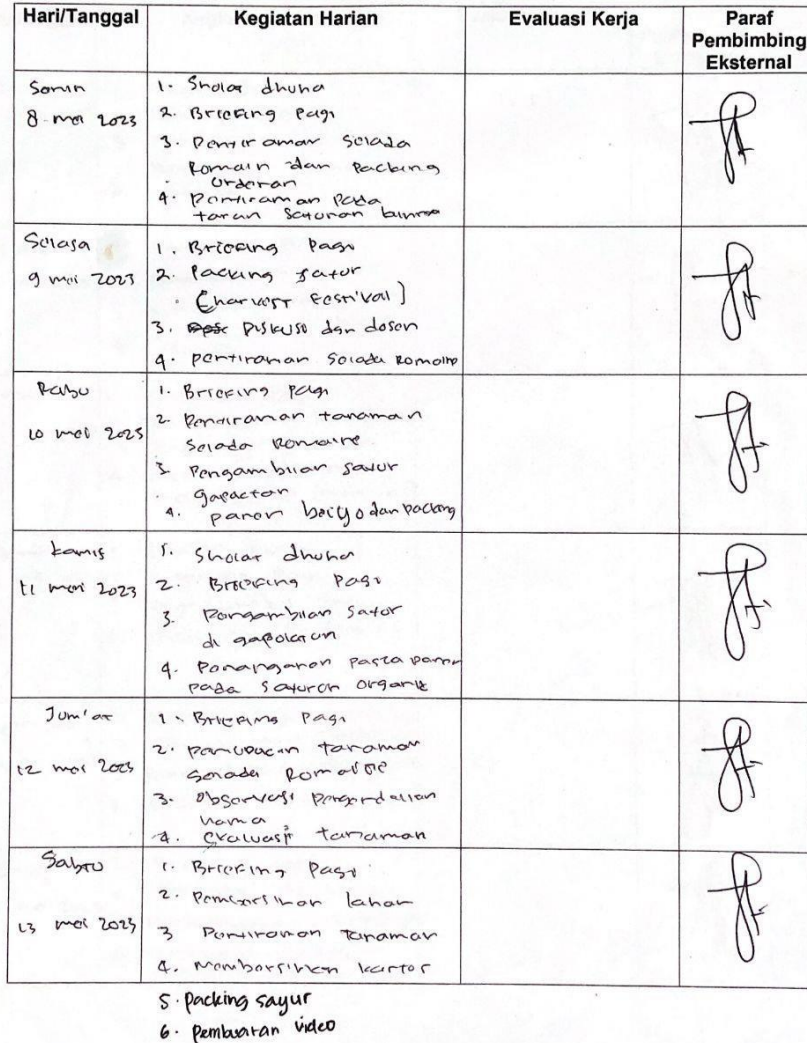 Hari/Tanggal Kegiatan Harian Evaluasi Kerja Paraf
Pembimbing
Eksternal
Senin
8 mei 2023
1. Sholat dhuha
2. Briefing Pagi
3. Penyiraman Selada
Romain dan Packing
orderan
4. Penyiraman Pada
Selasa
9 mei 2023
1. Briefing Pagi
2. Packing sayur
(harvest Festival)
3. Diskusi dan dosen
4. penyiraman Selada Romaine
Rabu
10 mei 2023
1. Briefing Pagi
2. Penyiraman tanaman
Selada Romaine
3. Pengambilan sayur
4. panen dan packing
Kamis
11 mei 2023
1. Sholat dhuha
2. Briefing Pagi
3. Pengambilan Sayur
di
4. Penanganan Pasca panen
pada Sayuran organik
Jum'at
12 mei 2023
1. Briefing Pagi
2. pemupukan tanaman
Selada Romaine
3. Observasi Pengendalian
hama
4. evaluasi tanaman
Sabtu
13 mei 2023
1. Briefing Pagi
2. Pembersihan lahan
3 Penyiraman tanaman
4. Membersihkan kantor
5. packing sayur
6. pembuatan video